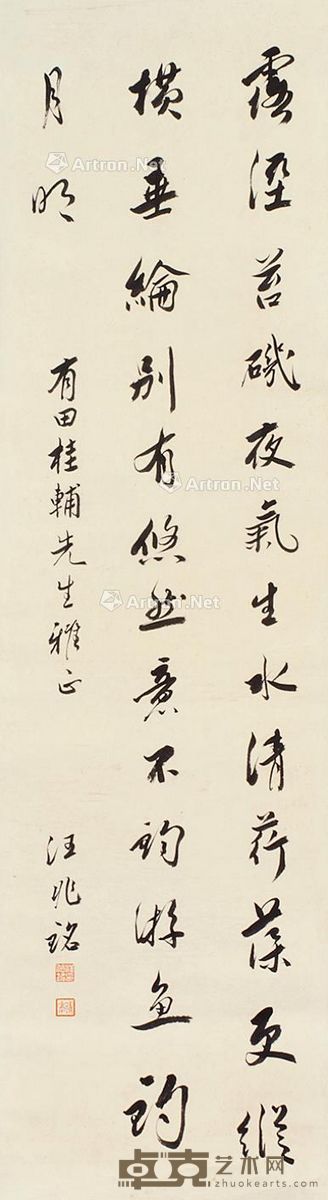 露溼苔磯夜氣生水清荇葉更縱
橫垂綸別有悠然意不釣游魚釣
月明
有田桂輔先生雅正
汪兆銘
Artron.Net
Artron.Net
Artron.Net
Artron.Net
卓克艺术网
www.zhuokearts.com